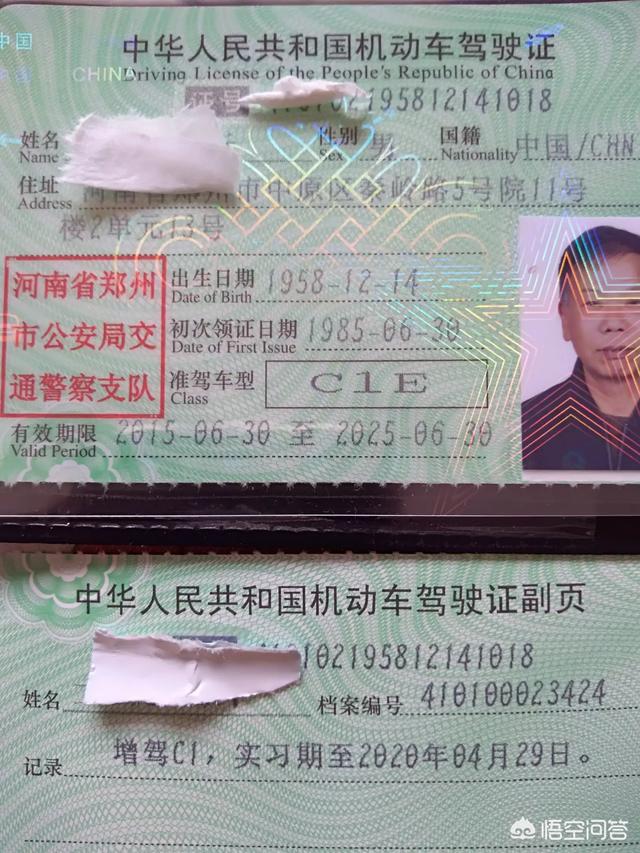 中国
中国
CHINA
中华人民共和国机动车驾驶证
Driving License of the People's Republic of China
证号
02195812141018
姓名
Name
性别 男
Sex
国籍 中国/CHN
Nationality
住址 河南省郑州市中原区秦岭路5号院11号
Address
楼2单元13号
河南省郑州
市公安局交
通警察支队
出生日期 1958-12-14
Date of Birth
初次领证日期 1985-06-30
Date of First Issue
准驾车型 C1E
Class
有效期限 2015-06-30 至 2025-06-30
Valid Period
中华人民共和国机动车驾驶证副页
102195812141018
姓名
档案编号 410100023424
记录 增驾C1，实习期至2020年04月29日。
悟空问答